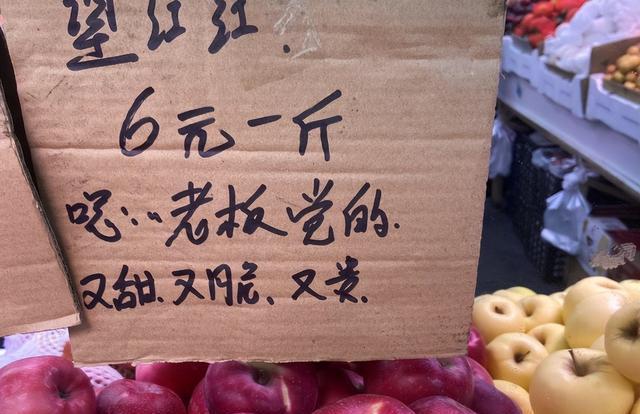 红红.
6元一斤
老板觉的.
又甜.又脆、又贵.